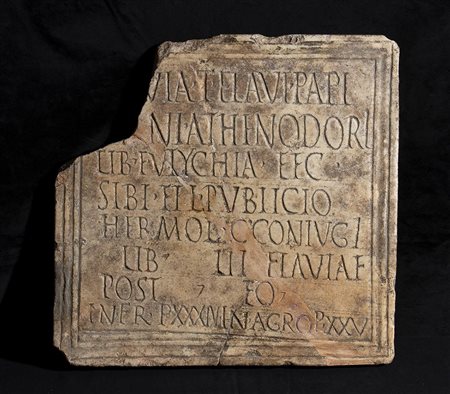 VIA T FLAVI PAPI
NI ATHENODORI
LIB·EVTYCHIA·FEC
SIBI·ET·L·PVBLICIO
HERMOL·C·CONIVGI
LIB· FLAVIAE
POST · EO ·
IN FR·P XXXIV IN AGRO P·XXV